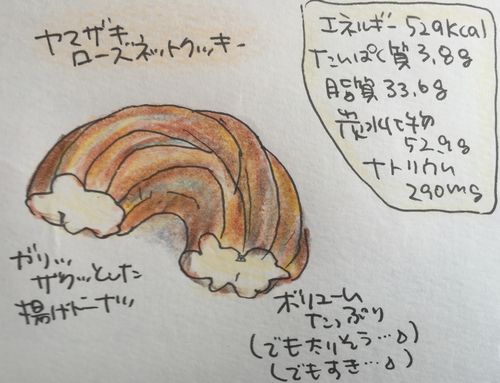 ヤマザキ
ローズネットクッキー
エネルギー 529kcal
たんぱく質 3.8g
脂質 33.6g
炭水化物
52.9g
ナトリウム
290mg
ガリッ
ザクッとした
揚げドーナツ
ボリューム
たっぷり
(でも太りそう…)
(でもすき…)